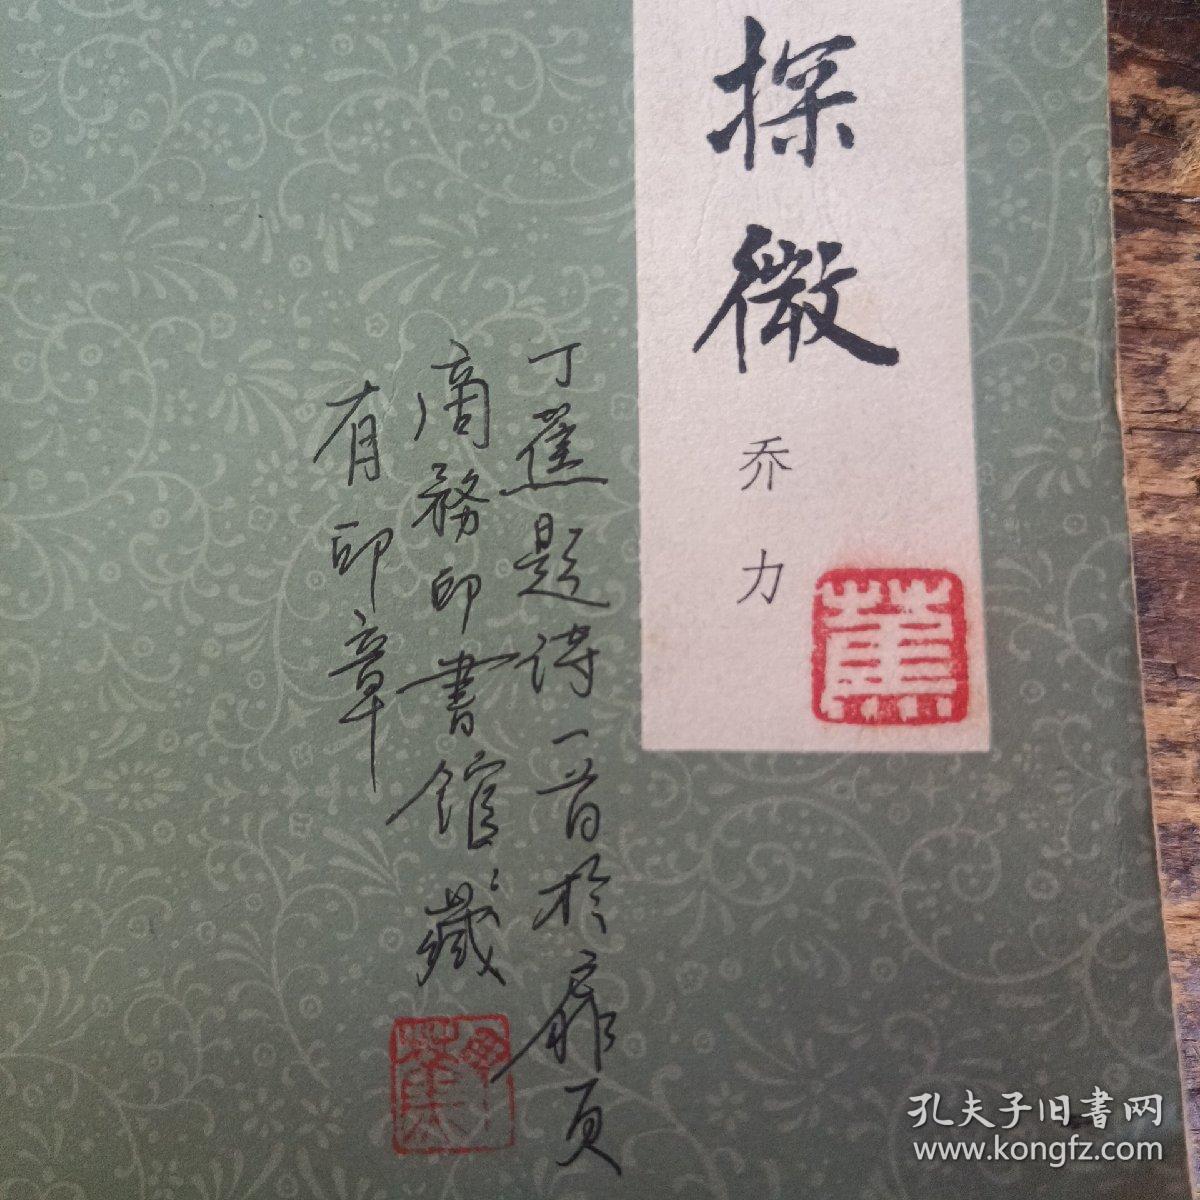 探微
乔力
蕉
丁蕉题诗一首於扉页
商務印書馆藏
有印章
孔夫子旧書网
www.kongfz.com